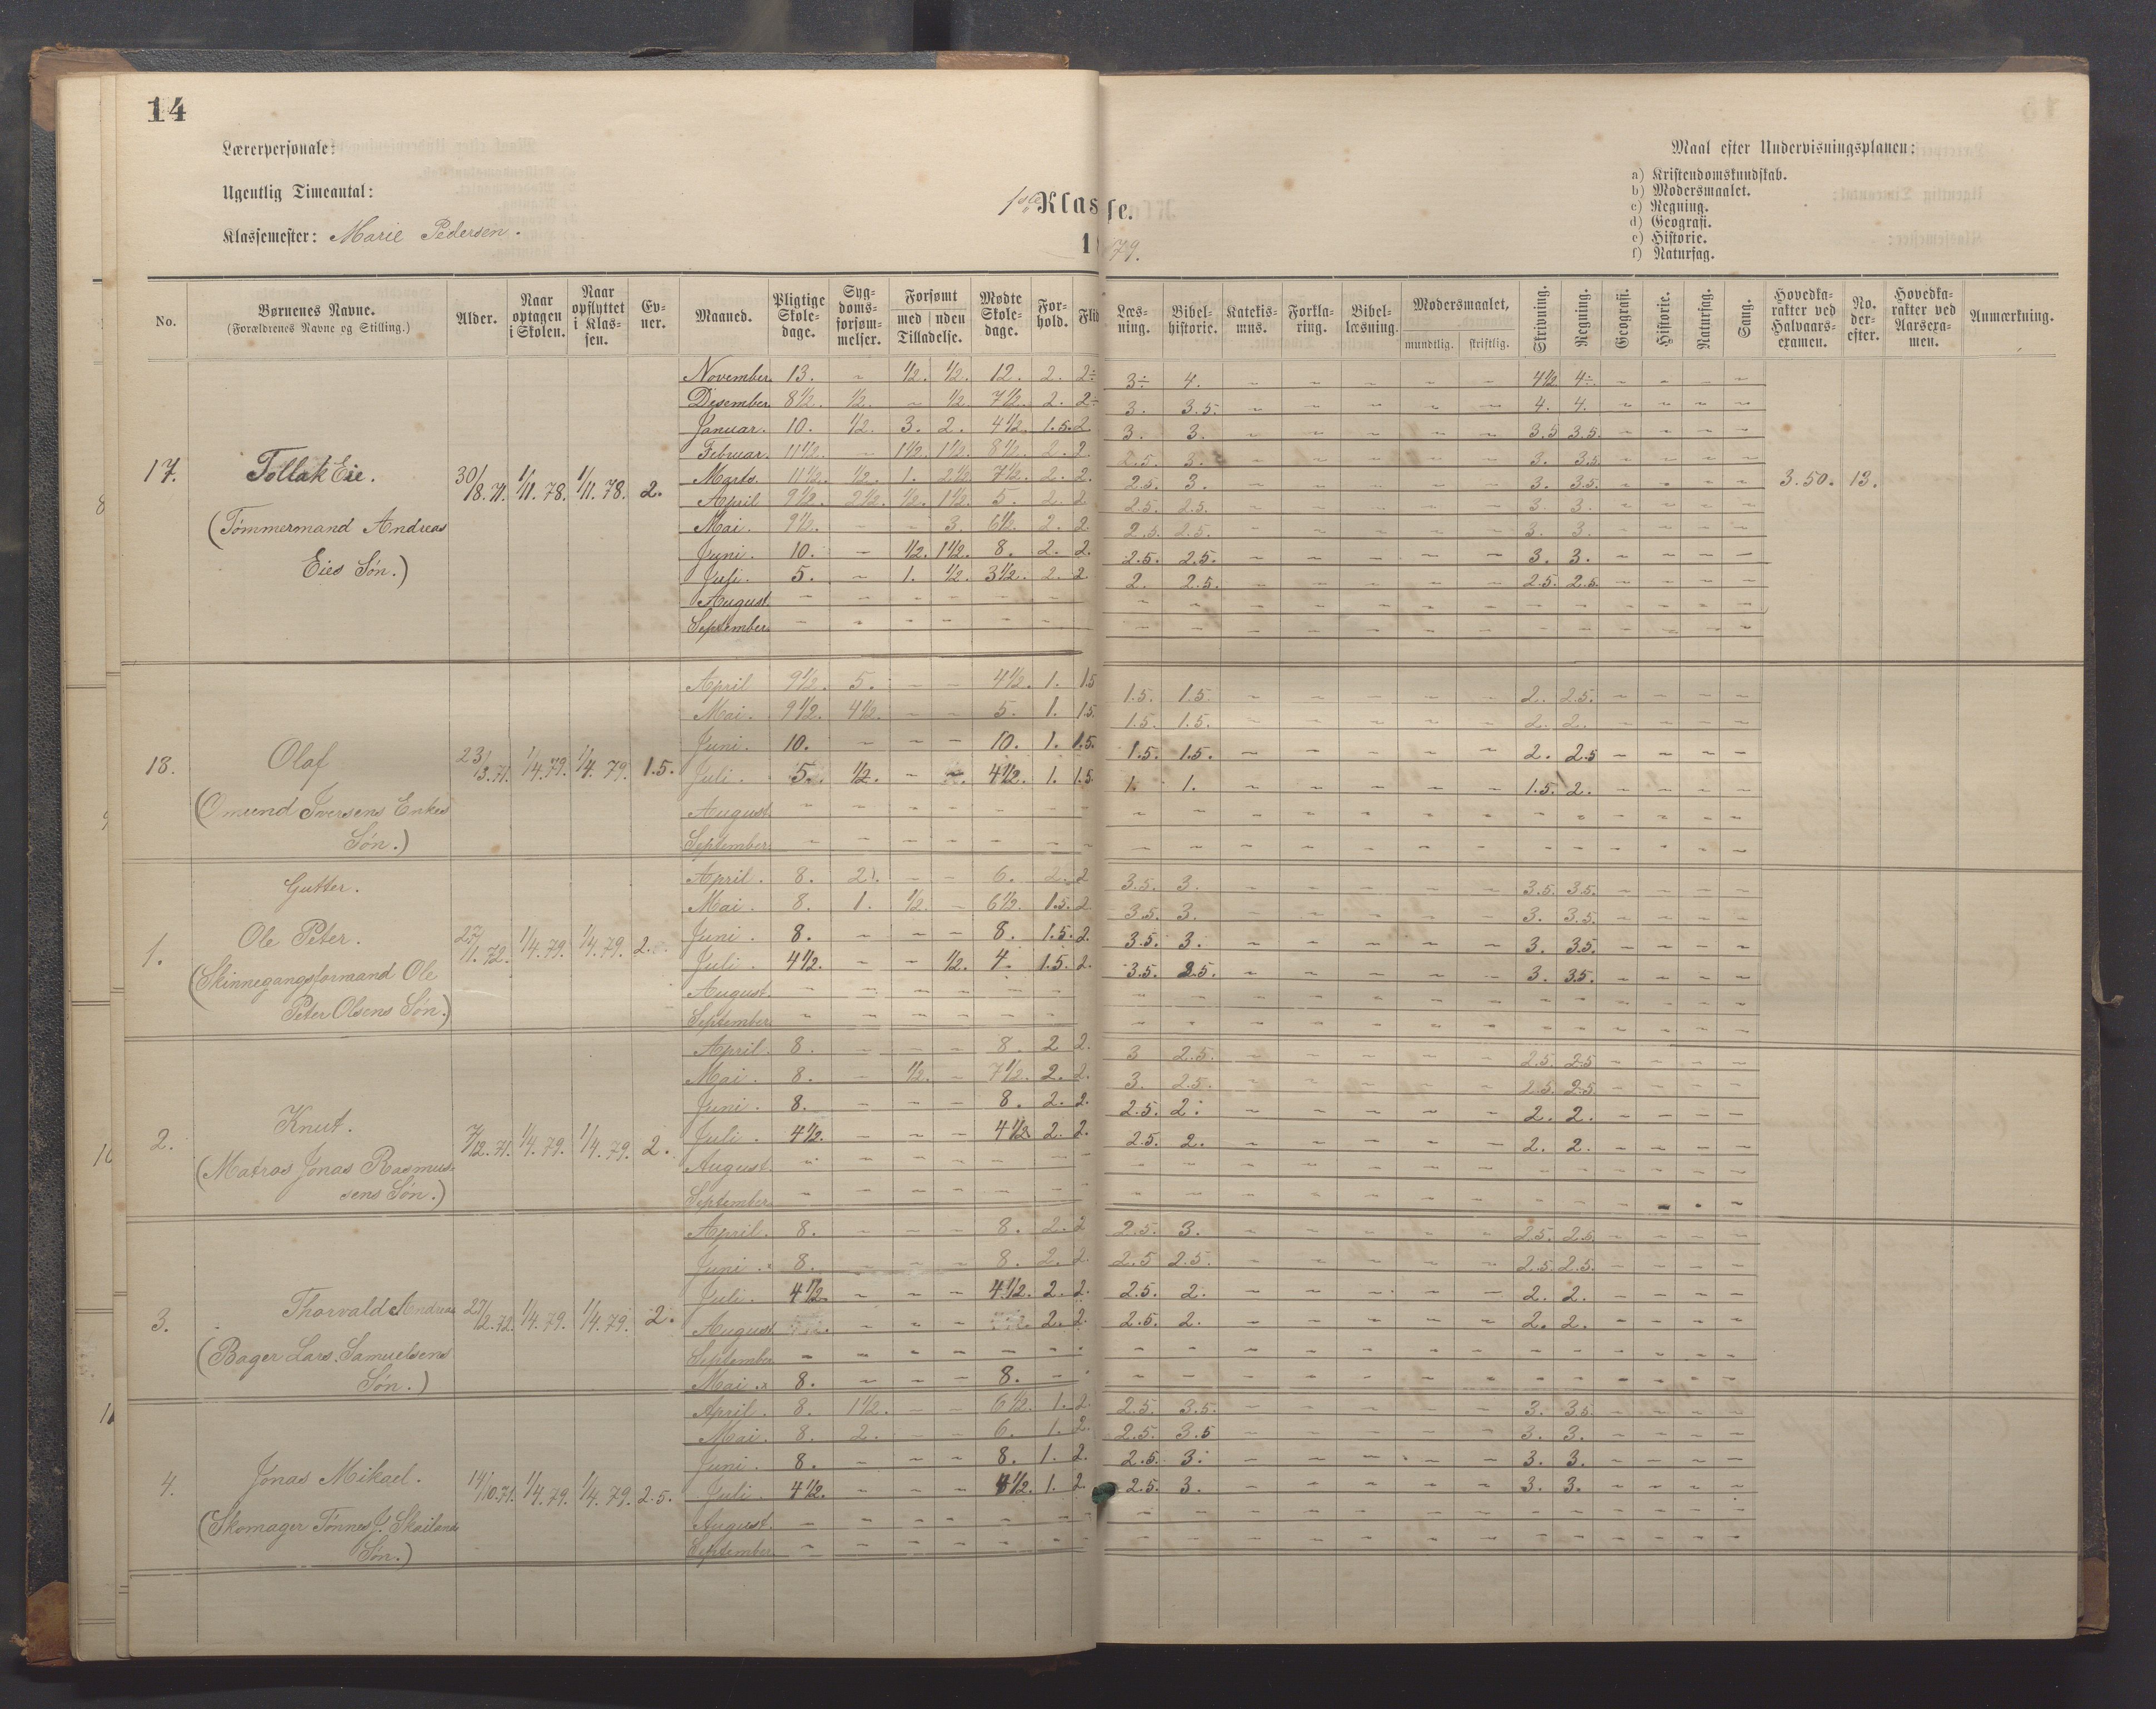 14
Lærerpersonale:
Ugentlig Timeantal:
Klassemester: Marie Pedersen.
1ste Klasse.
1879.
Maal efter Undervisningsplanen:
a) Kristendomskundskab.
b) Modersmaalet.
c) Regning.
d) Geografi.
e) Historie.
f) Naturfag.
No. Børnenes Navne. (Forældrenes Navne og Stilling.) Alder. Naar optagen i Skolen. Naar opflyttet i Klassen. Evner. Maaned. Pligtige Skoledage. Sygdomsforsømmelser. Forsømt med uden Tilladelse. Mødte Skoledage. Forhold. Flid Læsning. Bibelhistorie. Katekismus. Forklaring. Bibellæsning. Modersmaalet, mundtlig. skriftlig. Skrivning. Regning. Geografi. Historie. Naturfag. Sang. Hovedkarakter ved Halvaarsexamen. No. derefter. Hovedkarakter ved Aarsexamen. Anmærkning.
17. Tollak Eie. 30/8.71. 1/11.78. 1/11.78. 2. 3.50. 13.
(Tømmermand Andreas
Eies Søn.)
November. 13. ~ 1/2. 1/2. 12. 2. 2÷ 3÷ 4. ~ ~ ~ ~ ~ 4 1/2. 4÷ ~ ~ ~ ~
Desember. 8 1/2. 1/2. ~ 1/2. 7 1/2. 2. 2÷ 3. 3.5. ~ ~ ~ ~ ~ 4. 4. ~ ~ ~ ~
Januar. 10. 1/2. 3. 2. 4 1/2. 1.5. 2 3. 3. ~ ~ ~ ~ ~ 3.5 3.5. ~ ~ ~ ~
Februar. 11 1/2. ~ 1 1/2. 1 1/2. 8 1/2. 2. 2. 2.5. 3. ~ ~ ~ ~ ~ 3. 3.5. ~ ~ ~ ~
Marts. 11 1/2. 1/2. 1. 2 1/2. 7 1/2. 2. 2. 2.5. 3. ~ ~ ~ ~ ~ 3. 3.5. ~ ~ ~ ~
April 9 1/2. 2 1/2. 1/2. 1 1/2. 5. 2. 2. 2.5. 2.5. ~ ~ ~ ~ ~ 3. 3. ~ ~ ~ ~
Mai. 9 1/2. ~ ~ 3. 6 1/2. 2. 2. 2.5. 2.5. ~ ~ ~ ~ ~ 3. 3. ~ ~ ~ ~
Juni. 10. ~ 1/2. 1 1/2. 8. 2. 2. 2.5. 2.5. ~ ~ ~ ~ ~ 3. 3. ~ ~ ~ ~
Juli. 5. ~ 1. 1/2. 3 1/2. 2. 2. 2. 2.5. ~ ~ ~ ~ ~ 2.5. 2.5. ~ ~ ~ ~
August. ~ ~ ~ ~ ~ ~ ~
September. ~ ~ ~ ~ ~ ~ ~
18. Olaf 23/3.71. 1/4.79. 1/4.79. 1.5.
(Omund Iversens Enkes
Søn.)
April 9 1/2. 5. ~ ~ 4 1/2. 1. 1.5 1.5. 1.5. ~ ~ ~ ~ ~ 2. 2.5. ~ ~ ~ ~
Mai. 9 1/2. 4 1/2. ~ ~ 5. 1. 1.5. 1.5. 1.5. ~ ~ ~ ~ ~ 2. 2. ~ ~ ~ ~
Juni. 10. ~ ~ ~ 10. 1. 1.5. 1.5. 1.5. ~ ~ ~ ~ ~ 2. 2.5 ~ ~ ~ ~
Juli. 5. 1/2. ~ ~ 4 1/2. 1. 1.5 1. 1. ~ ~ ~ ~ ~ 1.5. 2. ~ ~ ~ ~
August. ~ ~ ~ ~ ~ ~ ~
September. ~ ~ ~ ~ ~ ~ ~
Gutter.
1. Ole Peter. 1/4.79. 1/4.79. 2.
(Skinnegangsformand Ole
Peter Olsens Søn.)
April. 8. 2. ~ ~ 6. 2. 2 3.5. 3. ~ ~ ~ ~ ~ 3.5. 3.5. ~ ~ ~ ~
Mai. 8. 1. 1/2. ~ 6 1/2. 1.5. 2 3.5. 3. ~ ~ ~ ~ ~ 3. 3.5. ~ ~ ~ ~
Juni. 8. ~ ~ ~ 8. 1.5. 2. 3.5. 3. ~ ~ ~ ~ ~ 3. 3.5. ~ ~ ~ ~
Juli. 4 1/2. ~ ~ 1/2. 4. 1.5. 2. 3.5. 2.5. ~ ~ ~ ~ ~ 3. 3.5. ~ ~ ~ ~
August. ~ ~ ~ ~ ~ ~
September. ~ ~ ~ ~ ~ ~
2. Knut. 7/12.71. 1/4.79. 1/4.79. 2.
(Matros Jonas Rasmus-
sens Søn.)
April. 8. ~ ~ ~ 8. 2 2. 3 2.5. ~ ~ ~ ~ ~ 2.5. 2.5 ~ ~ ~ ~
Mai. 8. ~ 1/2. ~ 7 1/2. 2. 2. 3. 2.5. ~ ~ ~ ~ ~ 2.5. 2.5 ~ ~ ~ ~
Juni. 8. ~ ~ ~ 8. 2. 2. 2.5. 2. ~ ~ ~ ~ ~ 2. 2. ~ ~ ~ ~
Juli. 4 1/2. ~ ~ ~ 4 1/2. 2. 2. 2.5. 2. ~ ~ ~ ~ ~ 2. 2. ~ ~ ~ ~
August. ~ ~ ~ ~ ~ ~ ~
September. ~ ~ ~ ~ ~ ~ ~
3. Thorvald Andreas 27/2.72. 1/4.79. 1/4.79. 2.
(Bager Lars Samuelsens
Søn.)
April. 8. ~ ~ ~ 8. 2. 2 2.5. 3. ~ ~ ~ ~ ~ 2.5. 2.5 ~ ~ ~ ~
Juni. 8. ~ ~ ~ 8. 2. 2. 2.5 2.5. ~ ~ ~ ~ ~ 2.5. 2.5. ~ ~ ~ ~
Juli. 4 1/2. ~ ~ ~ 4 1/2. 2. 2. 2.5. 2. ~ ~ ~ ~ ~ 2. 2. ~ ~ ~ ~
August ~ ~ ~ 2. 2. 2.5. 2. ~ ~ ~ ~ ~ 2. 2. ~ ~ ~ ~
September ~ ~ ~ ~ ~ ~ ~
Mai. 8. ~ ~ ~ 8. ~
4. Jonas Mikael. 14/10.71. 1/4.79. 1/4.79. 2.5.
(Skomager Tønnes J. Skailands
Søn.)
April. 8. 1 1/2. ~ ~ 6 1/2. 1. 2. 2.5. 3.5. ~ ~ ~ ~ ~ 3. 3.5. ~ ~ ~ ~
Mai. 8. 2. ~ ~ 6. 1. 2. 2.5. 3.5 ~ ~ ~ ~ ~ 3. 3. ~ ~ ~ ~
Juni. 8. ~ ~ ~ 8. 1. 2. 2.5. 3. ~ ~ ~ ~ ~ 3. 3. ~ ~ ~ ~
Juli. 4 1/2. ~ ~ ~ 4 1/2. 1. 2. 2.5. 3. ~ ~ ~ ~ ~ 3. 3. ~ ~ ~ ~
August. ~ ~ ~ ~ ~ ~ ~
September. ~ ~ ~ ~ ~ ~ ~